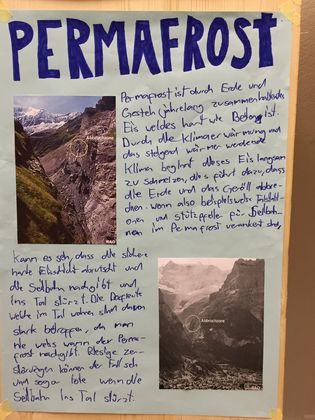 PERMAFROST
Permafrost ist durch Erde und
Gestein jahrelang zusammenhaltendes
Eis welches hart wie Beton ist.
Durch die Klimaerwärmung und
das steigend wärmer werdende
Klima beginnt dieses Eis langsam
zu schmelzen, dies führt dazu, dass
die Erde und das Geröll abbre-
chen. Wenn also beispielsweise
und Stützpfeile für Seilbah-
nen im Permafrost verankert sind,
Abbruchzone
RAO
Kann es sein, dass die
harte Eisschicht abrutscht und
die Seilbahn nachgibt und
ins Tal stürzt. Die Bergleute
welche im Tal wohnen sind davon
stark betroffen, da man
nie weiss wann der Perma-
frost nachgibt. Riesige Zer-
störungen können der Fall sein
und sogar Tote wenn die
Seilbahn ins Tal stürzt.
Abbruchzone
RAO